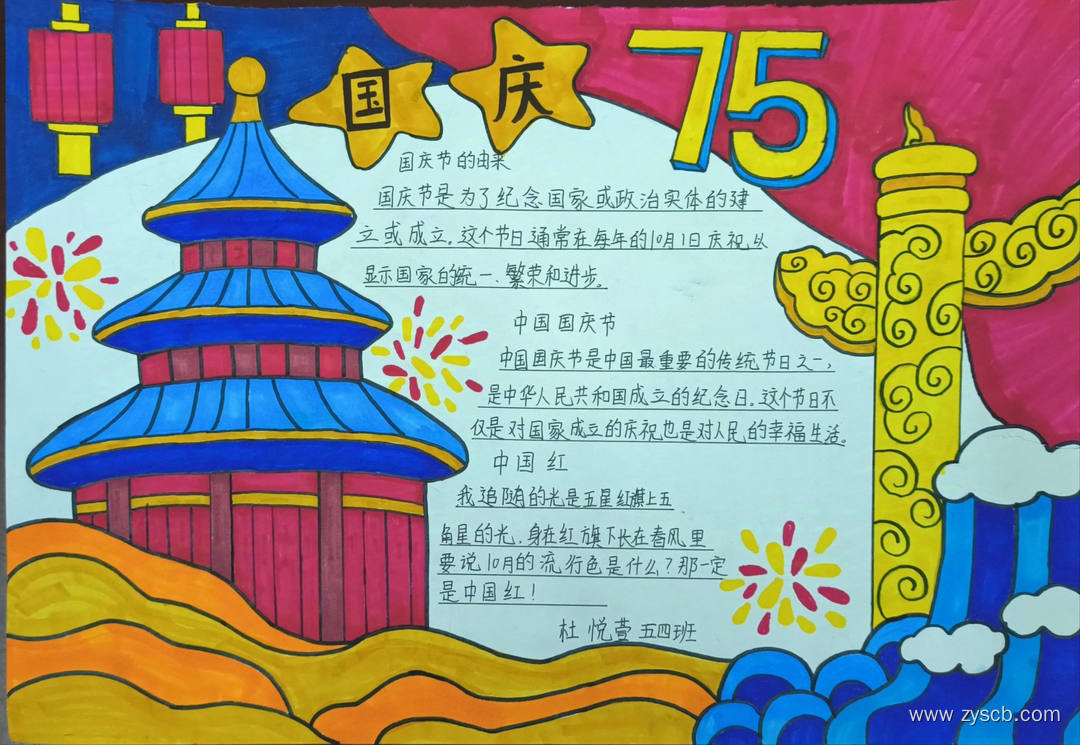 国庆
75
国庆节的由来
国庆节是为了纪念国家或政治实体的建
立或成立。这个节日通常在每年的10月1日庆祝以
显示国家的统一、繁荣和进步。
中国国庆节
中国国庆节是中国最重要的传统节日之一,
是中华人民共和国成立的纪念日。这个节日不
仅是对国家成立的庆祝也是对人民的幸福生活。
中国红
我追随的光是五星红旗上五
角星的光,身在红旗下长在春风里
要说10月的流行色是什么?那一定
是中国红!
杜悦萱 五四班
www.zyscb.com